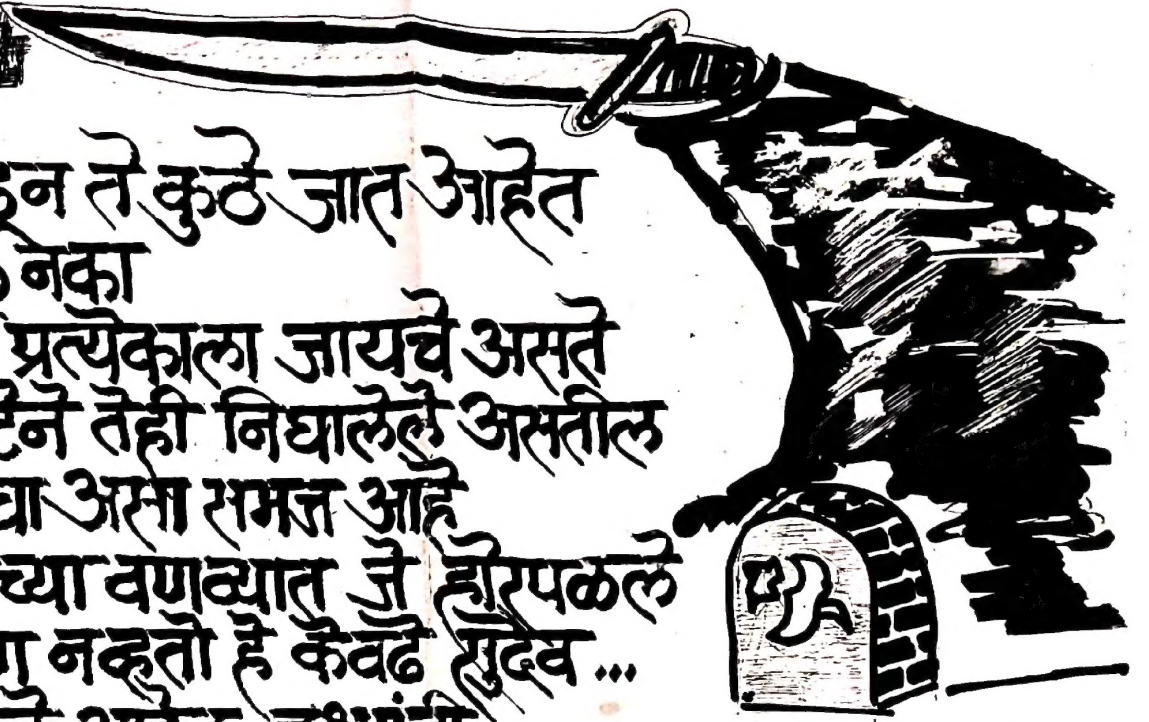 ते कुठे जात आहेत
नका
प्रत्येकाला जायचे असते
तेही निघालेले असतील
असा समज आहे
च्या वणव्यात जे होरपळले
नव्हतो हे केवढे सुदैव ...